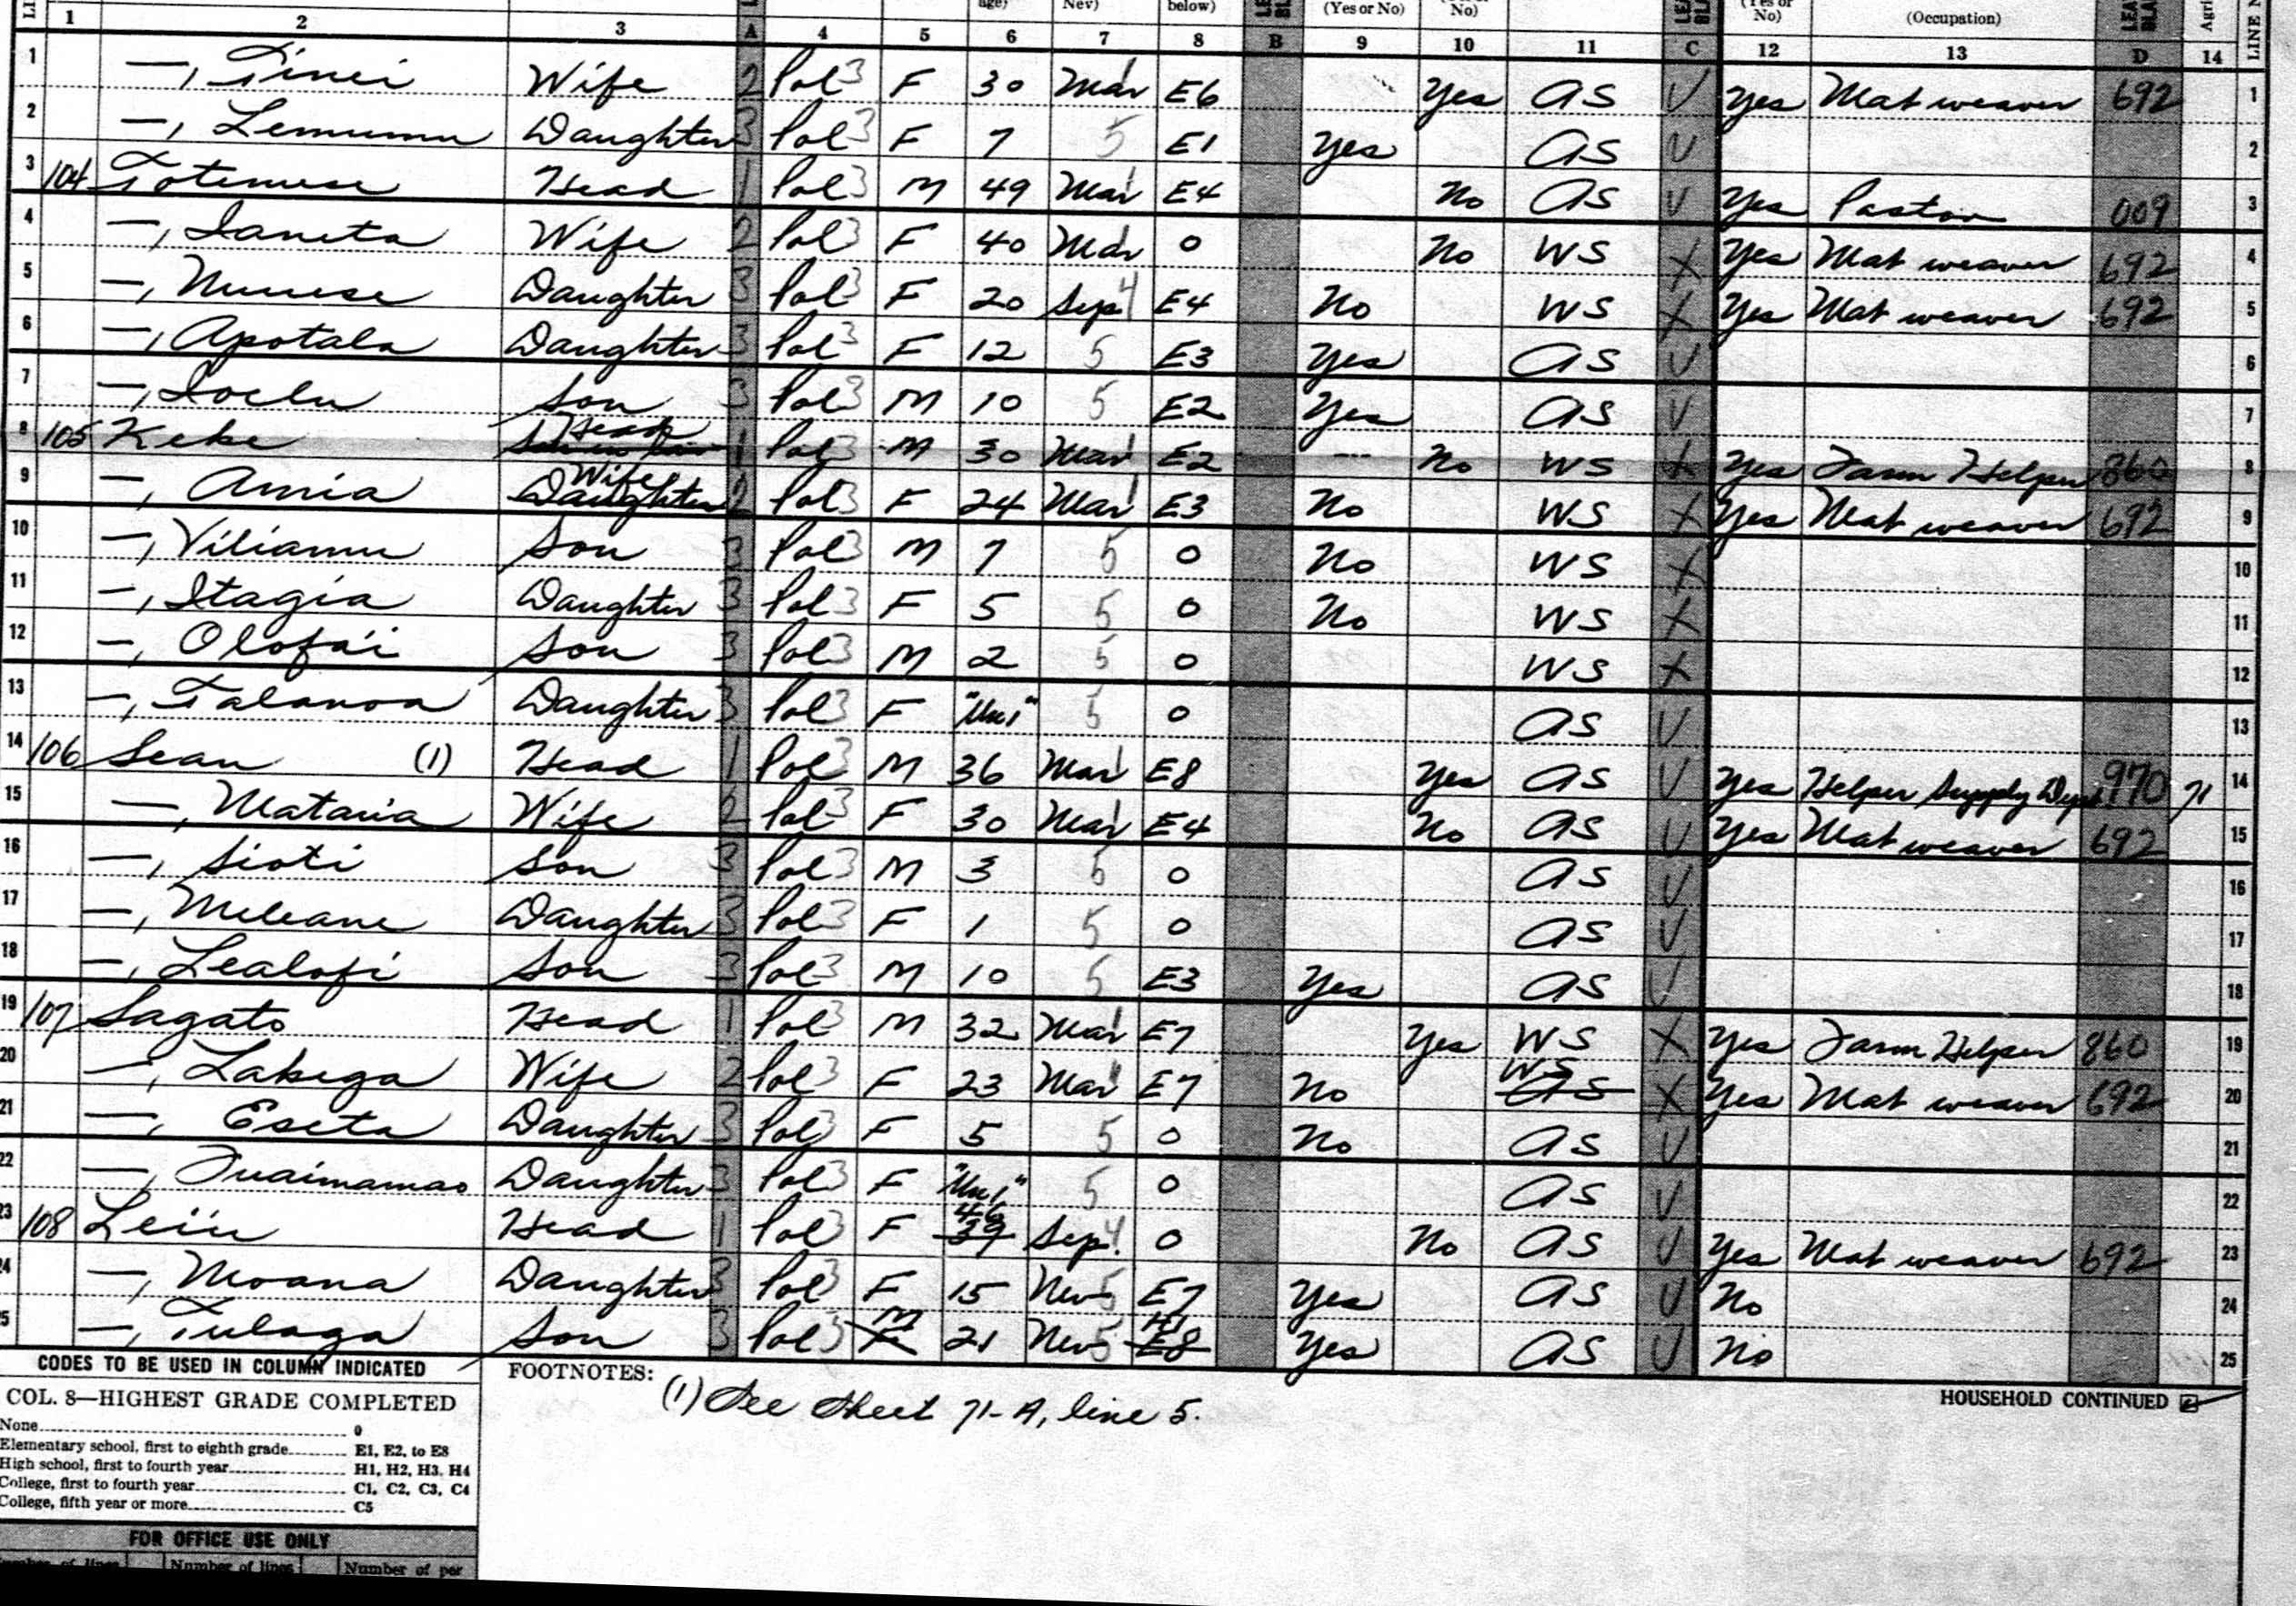 age) Nev) below) (Yes or No) No) (Yes or No) (Occupation) Agri LINE N
1 2 3 A 4 5 6 7 8 B 9 10 11 C 12 13 D 14
1 —, Finei Wife 2 Pol 3 F 30 Mar 1 E6 Yes AS V Yes Mat weaver 692 1
2 —, Lemumu Daughter 3 Pol 3 F 7 5 E1 Yes AS V 2
3 104 Head 1 Pol 3 M 49 Mar 1 E4 No AS V Yes Pastor 009 3
4 —, Ianeta Wife 2 Pol 3 F 40 Mar 1 0 No WS X Yes Mat weaver 692 4
5 —, Daughter 3 Pol 3 F 20 Sep 4 E4 No WS X Yes Mat weaver 692 5
6 —, Apotala Daughter 3 Pol 3 F 12 5 E3 Yes AS V 6
7 —, Ioelu Son 3 Pol 3 M 10 5 E2 Yes AS V 7
8 105 Keke Head 1 Pol 3 M 30 Mar 1 E2 --- No WS X Yes Farm Helper 860 8
9 —, Amia Wife Daughter 2 Pol 3 F 24 Mar 1 E3 No WS X Yes Mat weaver 692 9
10 —, Viliamu Son 3 Pol 3 M 7 5 0 No WS X 10
11 —, Itagia Daughter 3 Pol 3 F 5 5 0 No WS X 11
12 —, Olofa'i Son 3 Pol 3 M 2 5 0 WS X 12
13 —, Talanoa Daughter 3 Pol 3 F "Un 1" 5 0 AS V 13
14 106 Seau (1) Head 1 Pol 3 M 36 Mar 1 E8 Yes AS V Yes Helper Supply Dept 970 71 14
15 —, Mataria Wife 2 Pol 3 F 30 Mar 1 E4 No AS V Yes Mat weaver 692 15
16 —, Sioti Son 3 Pol 3 M 3 5 0 AS V 16
17 —, Meleane Daughter 3 Pol 3 F 1 5 0 AS V 17
18 —, Lealofi Son 3 Pol 3 M 10 5 E3 Yes AS V 18
19 107 Sagato Head 1 Pol 3 M 32 Mar 1 E7 Yes WS X Yes Farm Helper 860 19
20 —, Lakega Wife 2 Pol 3 F 23 Mar 1 E7 No WS AS X Yes Mat weaver 692 20
21 —, Eseta Daughter 3 Pol 3 F 5 5 0 No AS V 21
22 —, Fuaimamao Daughter 3 Pol 3 F "Un 1" 5 0 AS V 22
23 108 Leiu Head 1 Pol 3 F 46 39 Sep. 4 0 No AS V Yes Mat weaver 692 23
24 —, Moana Daughter 3 Pol 3 F 15 Nev 5 E7 Yes AS V No 24
25 —, Tulaga Son 3 Pol 3 M F 21 Nev 5 H1 E8 Yes AS V No 25
CODES TO BE USED IN COLUMN INDICATED
FOOTNOTES:
(1) See Sheet 71-A, line 5.
HOUSEHOLD CONTINUED
COL. 8—HIGHEST GRADE COMPLETED
None 0
Elementary school, first to eighth grade E1, E2, to E8
High school, first to fourth year H1, H2, H3, H4
College, first to fourth year C1, C2, C3, C4
College, fifth year or more C5
FOR OFFICE USE ONLY
Number of lines Number of lines Number of per